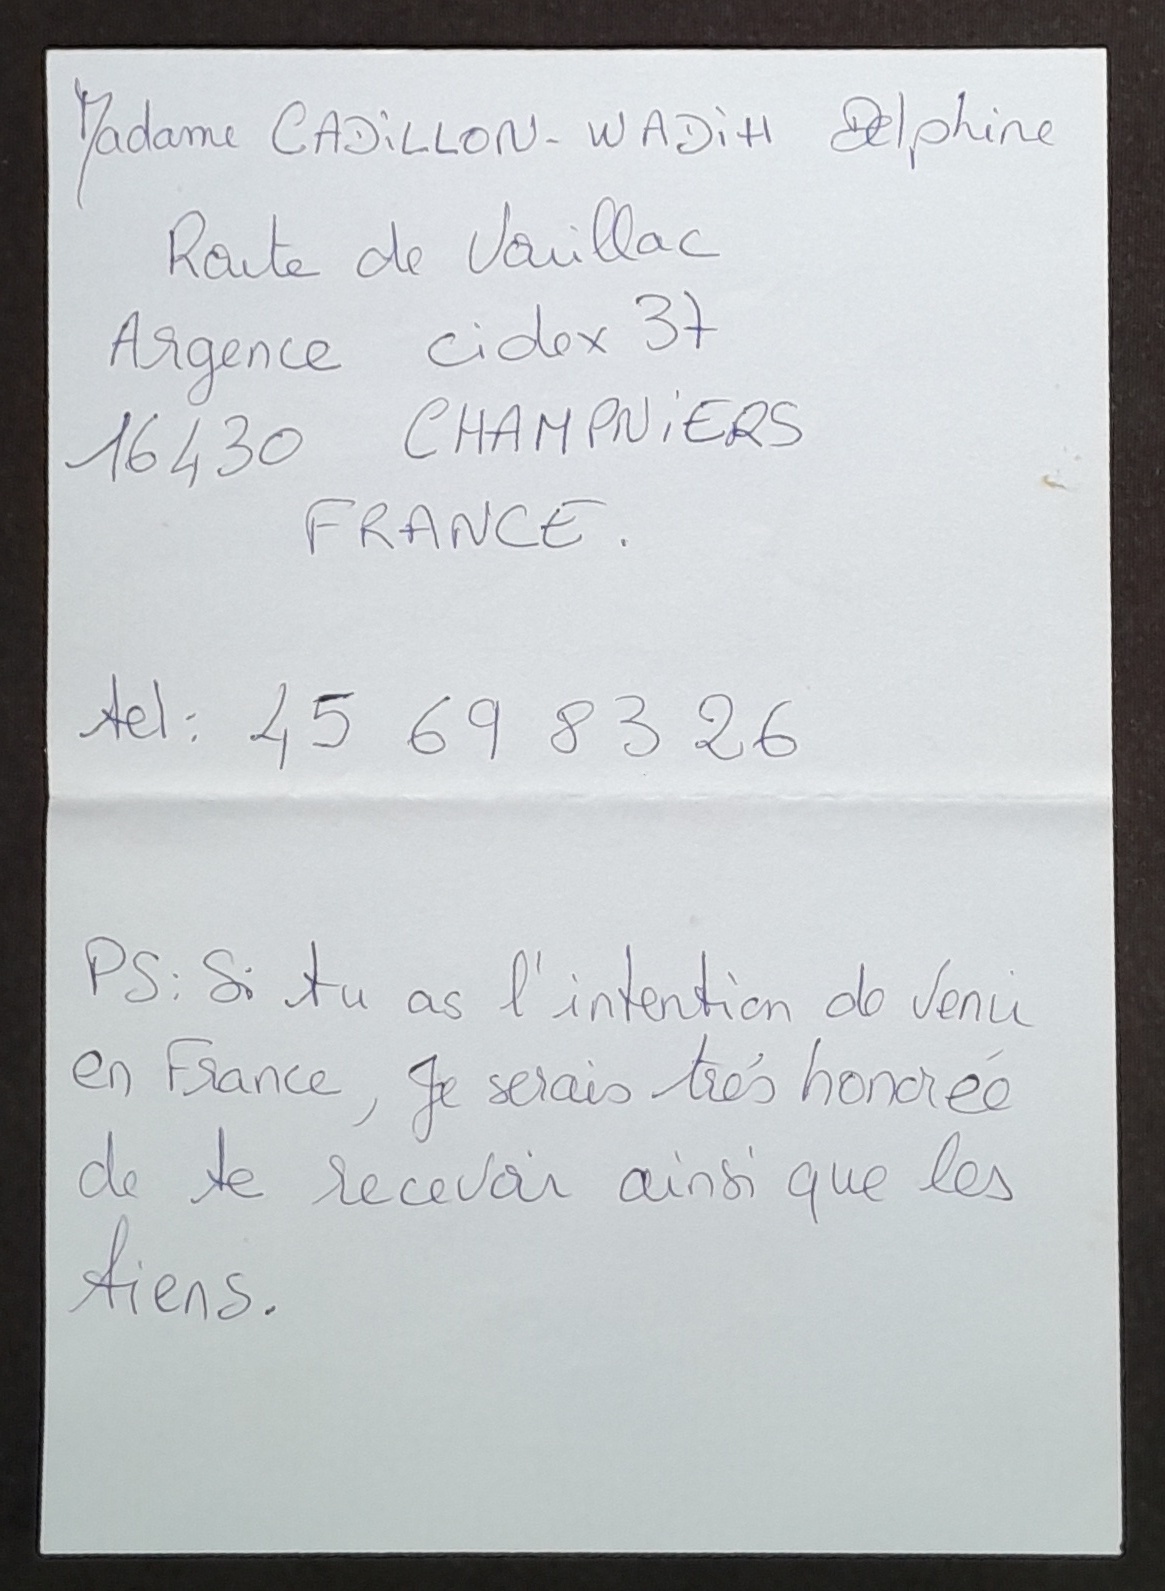 Madame CADiLLON-WADiH Delphine
Route de Vouillac
Argence cidex 37
16430 CHAMPNiERS
FRANCE.
tel: 45 69 83 26
PS: Si tu as l'intention de venir
en France, je serais trés honorée
de te recevoir ainsi que les
tiens.